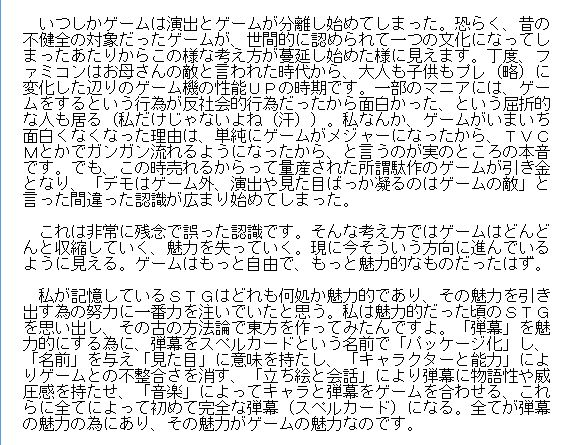 いつしかゲームは演出とゲームが分離し始めてしまった。恐らく、昔の
不健全の対象だったゲームが、世間的に認められて一つの文化になってし
まったあたりからこの様な考え方が蔓延し始めた様に見えます。丁度、フ
ァミコンはお母さんの敵と言われた時代から、大人も子供もプレ（略）に
変化した辺りのゲーム機の性能ＵＰの時期です。一部のマニアには、ゲー
ムをするという行為が反社会的行為だったから面白かった、という屈折的
な人も居る（私だけじゃないよね（汗））。私なんか、ゲームがいまいち
面白くなくなった理由は、単純にゲームがメジャーになったから、ＴＶＣ
Ｍとかでガンガン流れるようになったから、と言うのが実のところの本音
です。でも、この時売れるからって量産された所謂駄作のゲームが引き金
となり、「デモはゲーム外、演出や見た目ばっか凝るのはゲームの敵」と
言った間違った認識が広まり始めてしまった。
　これは非常に残念で誤った認識です。そんな考え方ではゲームはどんど
んと収縮していく、魅力を失っていく。現に今そういう方向に進んでいる
ように見える。ゲームはもっと自由で、もっと魅力的なものだったはず。
　私が記憶しているＳＴＧはどれも何処か魅力的であり、その魅力を引き
出す為の努力に一番力を注いでいたと思う。私は魅力的だった頃のＳＴＧ
を思い出し、その古の方法論で東方を作ってみたんですよ。「弾幕」を魅
力的にする為に、弾幕をスペルカードという名前で「パッケージ化」し、
「名前」を与え「見た目」に意味を持たし、「キャラクターと能力」によ
りゲームとの不整合さを消す、「立ち絵と会話」により弾幕に物語性や威
圧感を持たせ、「音楽」によってキャラと弾幕をゲームを合わせる、これ
らに全てによって初めて完全な弾幕（スペルカード）になる。全てが弾幕
の魅力の為にあり、その魅力がゲームの魅力なのです。